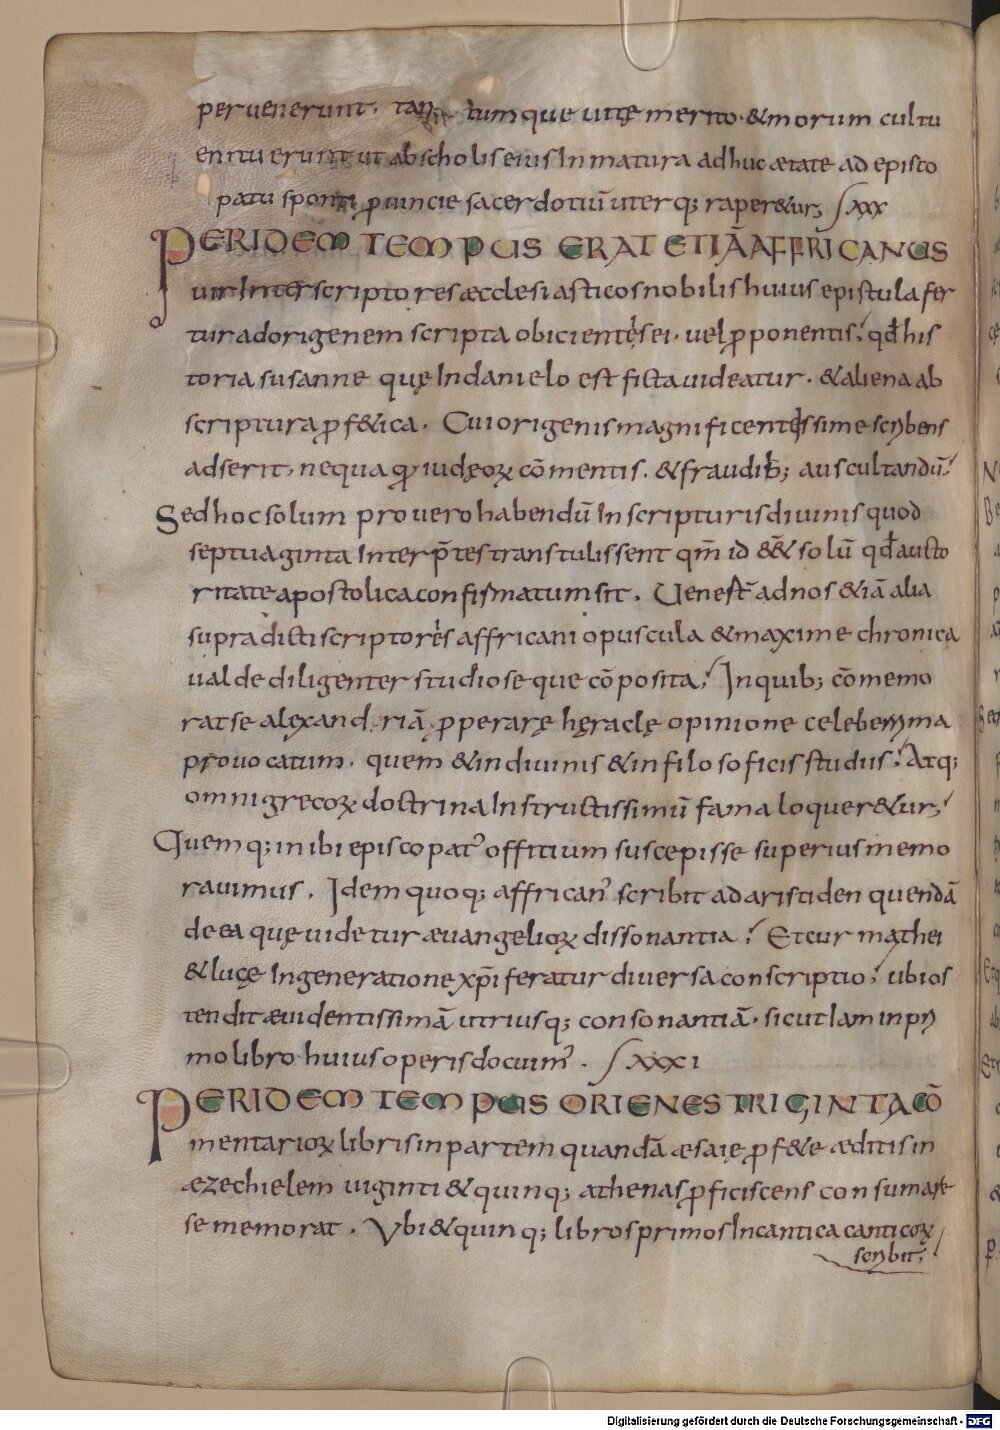 peruenerunt. tan tumque uitę merito. &morum cultu
enituerunt ut abscholiseius Inmatura adhuc ætate ad episco
patū sponti ꝑuincie sacerdotiū uterq; raper&ur; ⌠xxx
PERIDEM TEMPUS ERAT ETIĀ AFFRICANUS
uir Inter scriptores æcclesiasticos nobilis huius epistula fer
tur adorigenem scripta obicientis ei. uel ꝓponentis; qđ his
toria susanne quę Indanielo est ficta uideatur. &aliena ab
scriptura ꝓf&ica. Cui origenis magnificentissime scribens
adserit, nequaquā iudęoꝝ cōmentis, &fraudib; auscultandū;
Sed hoc solum pro uero habendū In scripturis diuinis quod
septuaginta Interp̄tes transtulissent qm̄ id &&̄ solū qđ aucto
ritate apostolica confirmatum sit. Uener̄ ad nos &iā alia
supradicti scriptoris affricani opuscula &maxime chronica
ualde diligenter studioseque cōposita; Inquib; cōmemo
rat se alexandriā ꝓperarę hęraclę opinione celeberrima
prouocatum. quem &in diuinis &in filosoficis studiis; Atq;
omni grecoꝝ doctrina Instructissimū fama loquer&ur;
Quemq; inibi episcopat᾽ offitium suscepisse superius memo
rauimus. Idem quoq; affrican᾽ scribit ad aristiden quendā
de ea quę uidetur æuangelioꝝ dissonantia; Et cur mathei
&lucę Ingeneratione xp̄i feratur diuersa conscriptio; ubi os
tendit æuidentissimā utriusq; consonantiā. sicut Iam in pri
mo libro huius operis docuim᾽. ⌠xxxi
PERIDEM TEMPUS ORIENES TRIGINTA CŌ
mentarioꝝ libris in partem quandā æsaię ꝓf&e æditis in
æzechielem uiginti &quinq; athenas ꝓficiscens consumasse
se memorat. Vbi &quinq; libros primos Incantica canticoꝝ
scribit;
Digitalisierung gefördert durch die Deutsche Forschungsgemeinschaft - DFG